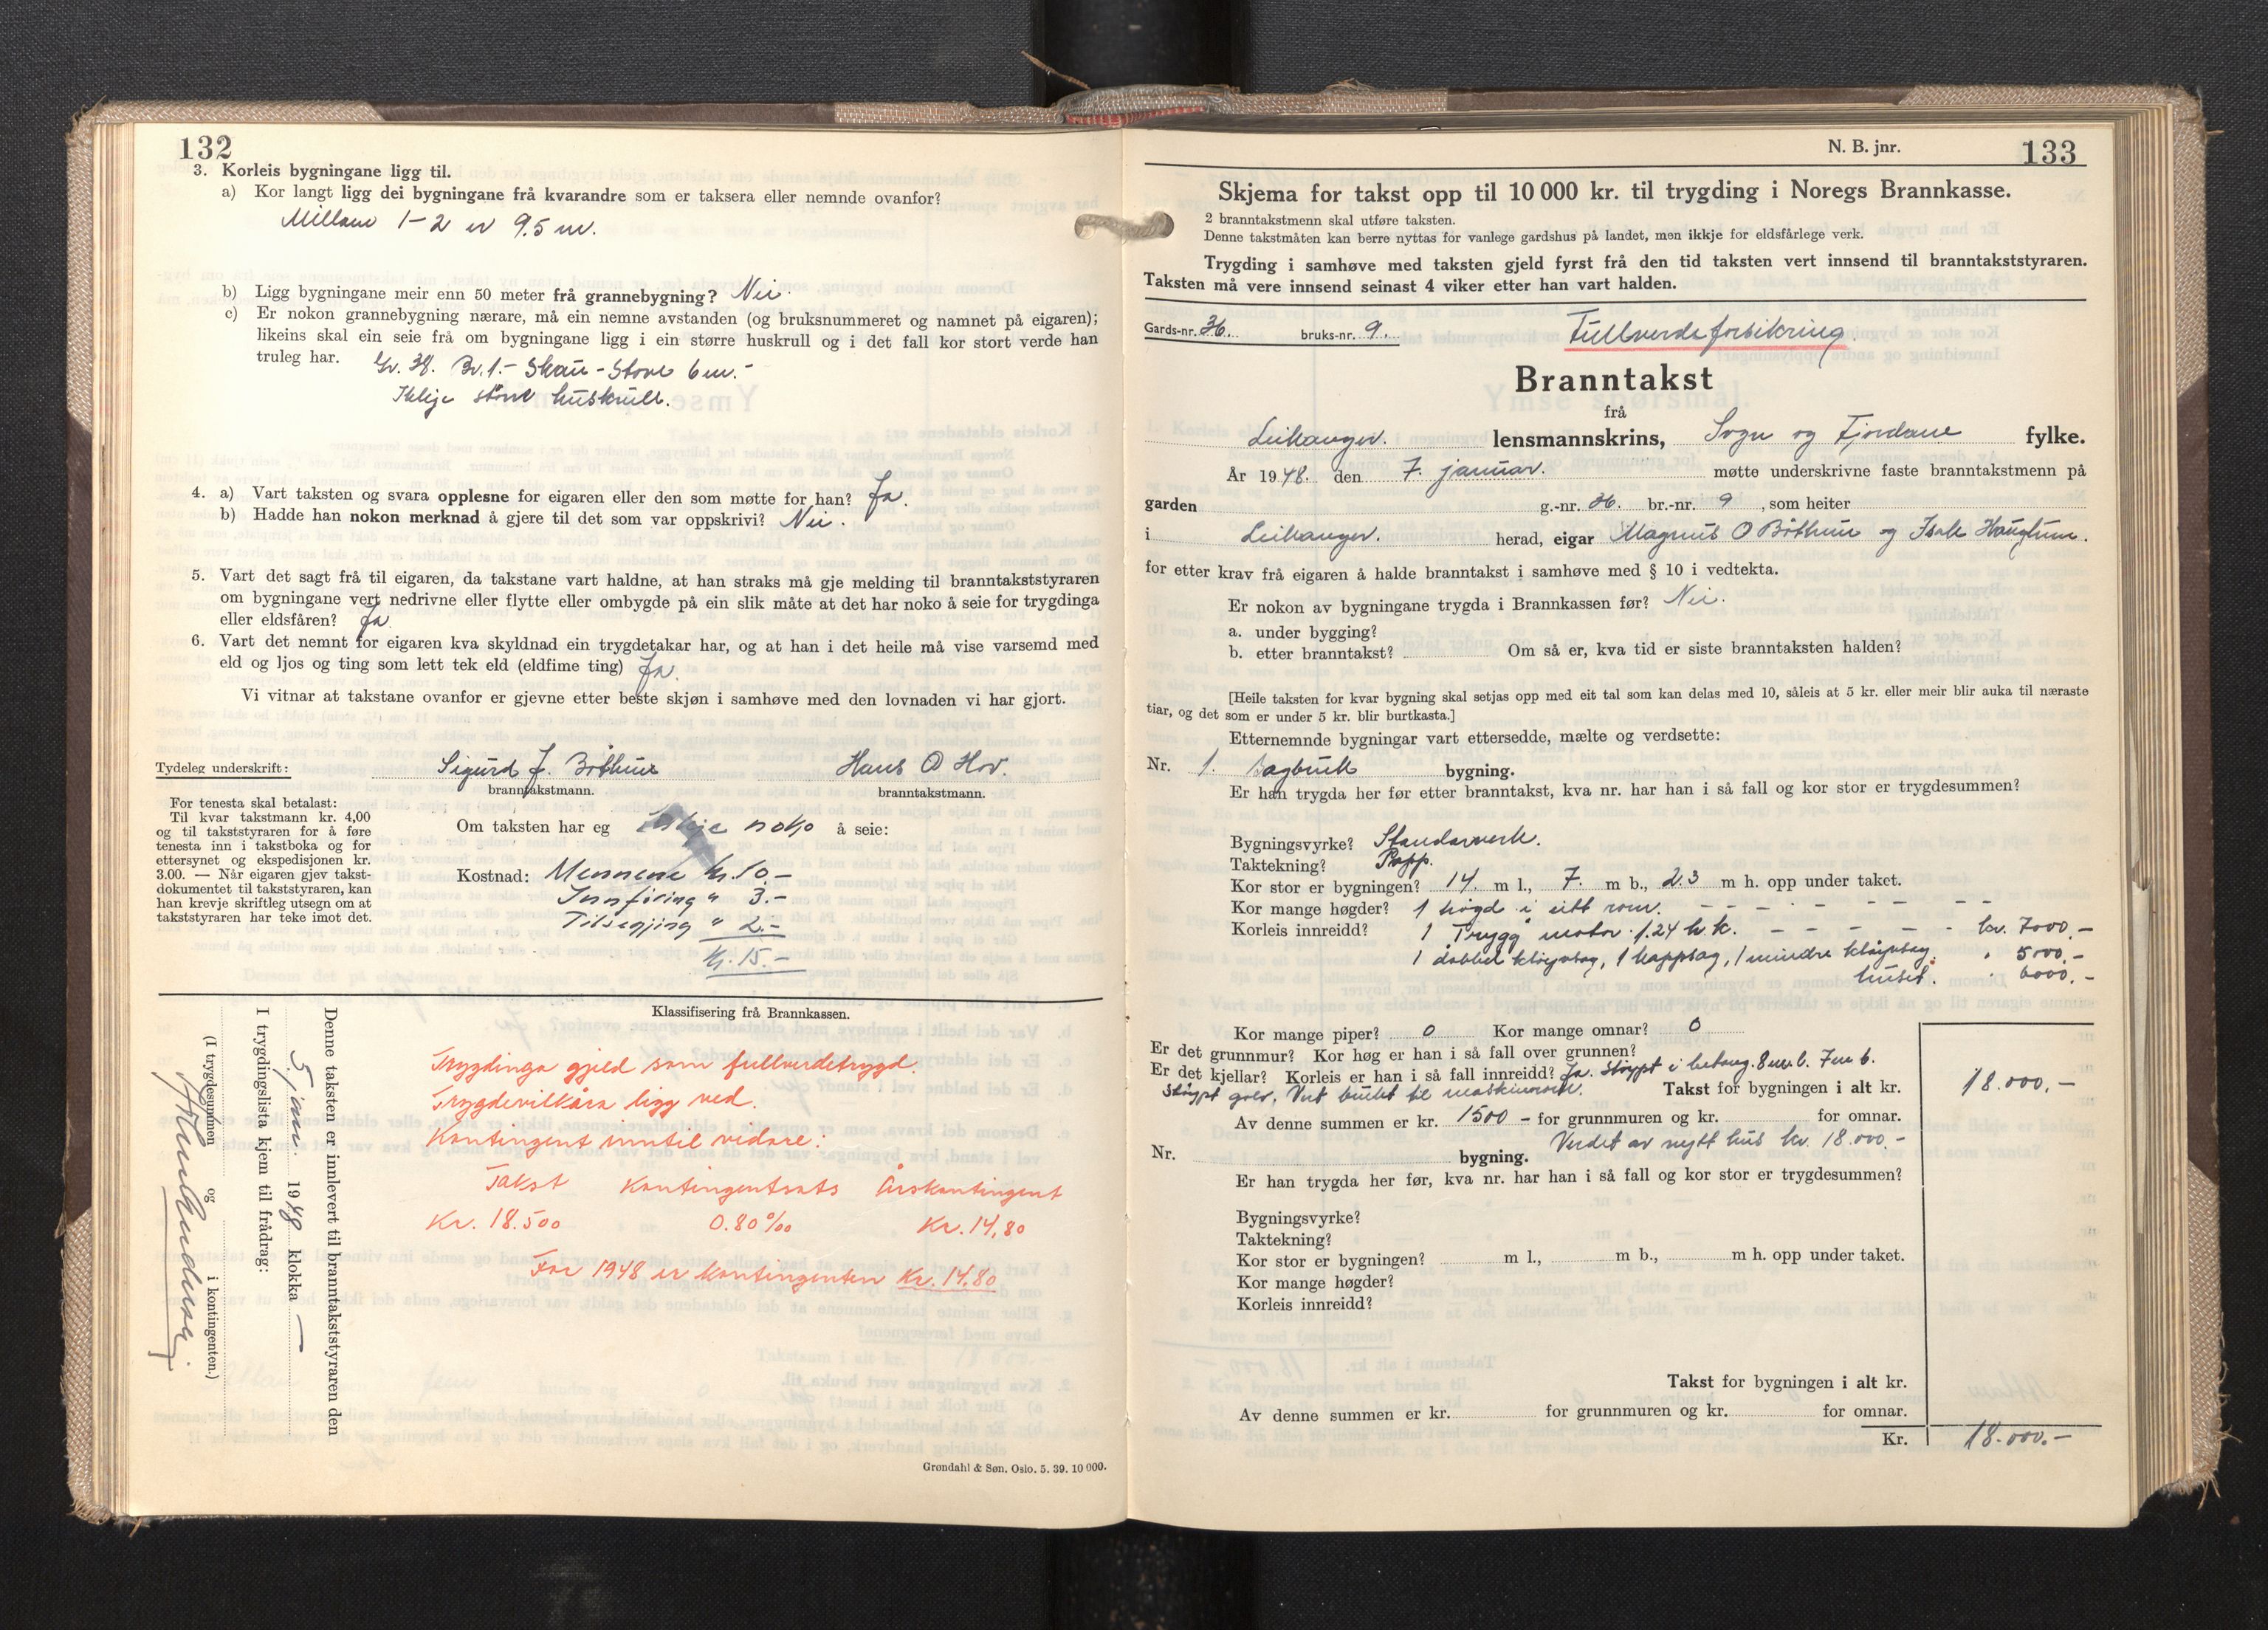 132
3. Korleis bygningane ligg til.
a) Kor langt ligg dei bygningane frå kvarandre som er taksera eller nemnde ovanfor?
Millom 1-2 er 9.5 m.
b) Ligg bygningane meir enn 50 meter frå grannebygning? Nei.
c) Er nokon grannebygning nærare, må ein nemne avstanden (og bruksnummeret og namnet på eigaren);
likeins skal ein seie frå om bygningane ligg i ein større huskrull og i det fall kor stort verde han
truleg har. Gr. 38. Br. 1.- Skau-Stove 6 m.-
Ikkje større huskrull.
4. a) Vart taksten og svara opplesne for eigaren eller den som møtte for han? Ja.
b) Hadde han nokon merknad å gjere til det som var oppskrivi? Nei.
5. Vart det sagt frå til eigaren, da takstane vart haldne, at han straks må gje melding til branntakststyraren
om bygningane vert nedrivne eller flytte eller ombygde på ein slik måte at det har noko å seie for trygdinga
eller eldsfåren? Ja
6. Vart det nemnt for eigaren kva skyldnad ein trygdetakar har, og at han i det heile må vise varsemd med
eld og ljos og ting som lett tek eld (eldfime ting) Ja.
Vi vitnar at takstane ovanfor er gjevne etter beste skjøn i samhøve med den lovnaden vi har gjort.
Tydeleg underskrift: Sigurd J. Bøthun Hans O Hov.
branntakstmann. branntakstmann.
For tenesta skal betalast:
Til kvar takstmann kr. 4,00
og til takststyraren for å føre
tenesta inn i takstboka og for
ettersynet og ekspedisjonen kr.
3.00. — Når eigaren gjev takst-
dokumentet til takststyraren, kan
han krevje skriftleg utsegn om at
takststyraren har teke imot det.
Om taksten har eg ikkje noko å seie:
Kostnad: Mennene kr. 10.-
Innføring " 3.-
Tilsegjing " 2.-
Kr. 15.-
Klassifisering frå Brannkassen.
Trygdinga gjeld som fullverdetrygd.
Trygdevilkåra ligg ved.
Kontingent inntil vidare:
Takst Kontingentsats Årskontingent
Kr. 18.500 0.80 ‰ Kr. 14,80
For 1948 er kontingenten Kr. 14.80
Denne taksten er innlevert til branntakststyraren den
5. jan. 1948 klokka —
I trygdingslista kjem til frådrag:
(I trygdesummen og i kontingenten.)
Grøndahl & Søn, Oslo. 5. 39. 10 000.
N. B. jnr. 133
Skjema for takst opp til 10 000 kr. til trygding i Noregs Brannkasse.
2 branntakstmenn skal utføre taksten.
Denne takstmåten kan berre nyttas for vanlege gardshus på landet, men ikkje for eldsfårlege verk.
Trygding i samhøve med taksten gjeld fyrst frå den tid taksten vert innsend til branntakststyraren.
Taksten må vere innsend seinast 4 viker etter han vart halden.
Gards-nr. 36. bruks-nr. 9. Fullverdeforsikring
Branntakst
frå
Leikanger. lensmannskrins, Sogn og Fjordane fylke.
År 1948. den 7. januar. møtte underskrivne faste branntakstmenn på
garden g.-nr. 36. br.-nr. 9, som heiter
i Leikanger. herad, eigar Magnus O Bøthun og Isak Hauglum.
for etter krav frå eigaren å halde branntakst i samhøve med § 10 i vedtekta.
Er nokon av bygningane trygda i Brannkassen før? Nei.
a. under bygging?
b. etter branntakst? Om så er, kva tid er siste branntaksten halden?
[Heile taksten for kvar bygning skal setjas opp med eit tal som kan delas med 10, såleis at 5 kr. eller meir blir auka til næraste
tiar, og det som er under 5 kr. blir burtkasta.]
Etternemnde bygningar vart ettersedde, mælte og verdsette:
Nr. 1. Sagbruk bygning.
Er han trygda her før etter branntakst, kva nr. har han i så fall og kor stor er trygdesummen?
Bygningsvyrke? Standarverk.
Taktekning? Papp.
Kor stor er bygningen? 14. m l., 7. m b., 2.3 m h. opp under taket.
Kor mange høgder? 1 høgd i eitt rom.
Korleis innreidd? 1 "Trygg" motor. 1.24 h.k. - - - - - kr. 7000.-
1 dobbel kløyvsag, 1 kappsag, 1 mindre kløyvsag. " 5000.-
huset. " 6000.-
Kor mange piper? 0 Kor mange omnar? 0
Er det grunnmur? Kor høg er han i så fall over grunnen?
Er det kjellar? Korleis er han i så fall innreidd? Ja. Støypt i betong. 8 m l. 7 m b.
Støypt golv. Vert brukt til maskinrom. Takst for bygningen i alt kr. 18.000.-
Av denne summen er kr. 1500 - for grunnmuren og kr. for omnar.
Verdet av nytt hus kr. 18.000.-
Nr. bygning.
Er han trygda her før, kva nr. har han i så fall og kor stor er trygdesummen?
Bygningsvyrke?
Taktekning?
Kor stor er bygningen? m l., m b., m h. opp under taket.
Kor mange høgder?
Korleis innreidd?
Takst for bygningen i alt kr.
Av denne summen er kr. for grunnmuren og kr. for omnar.
Kr. 18.000.-